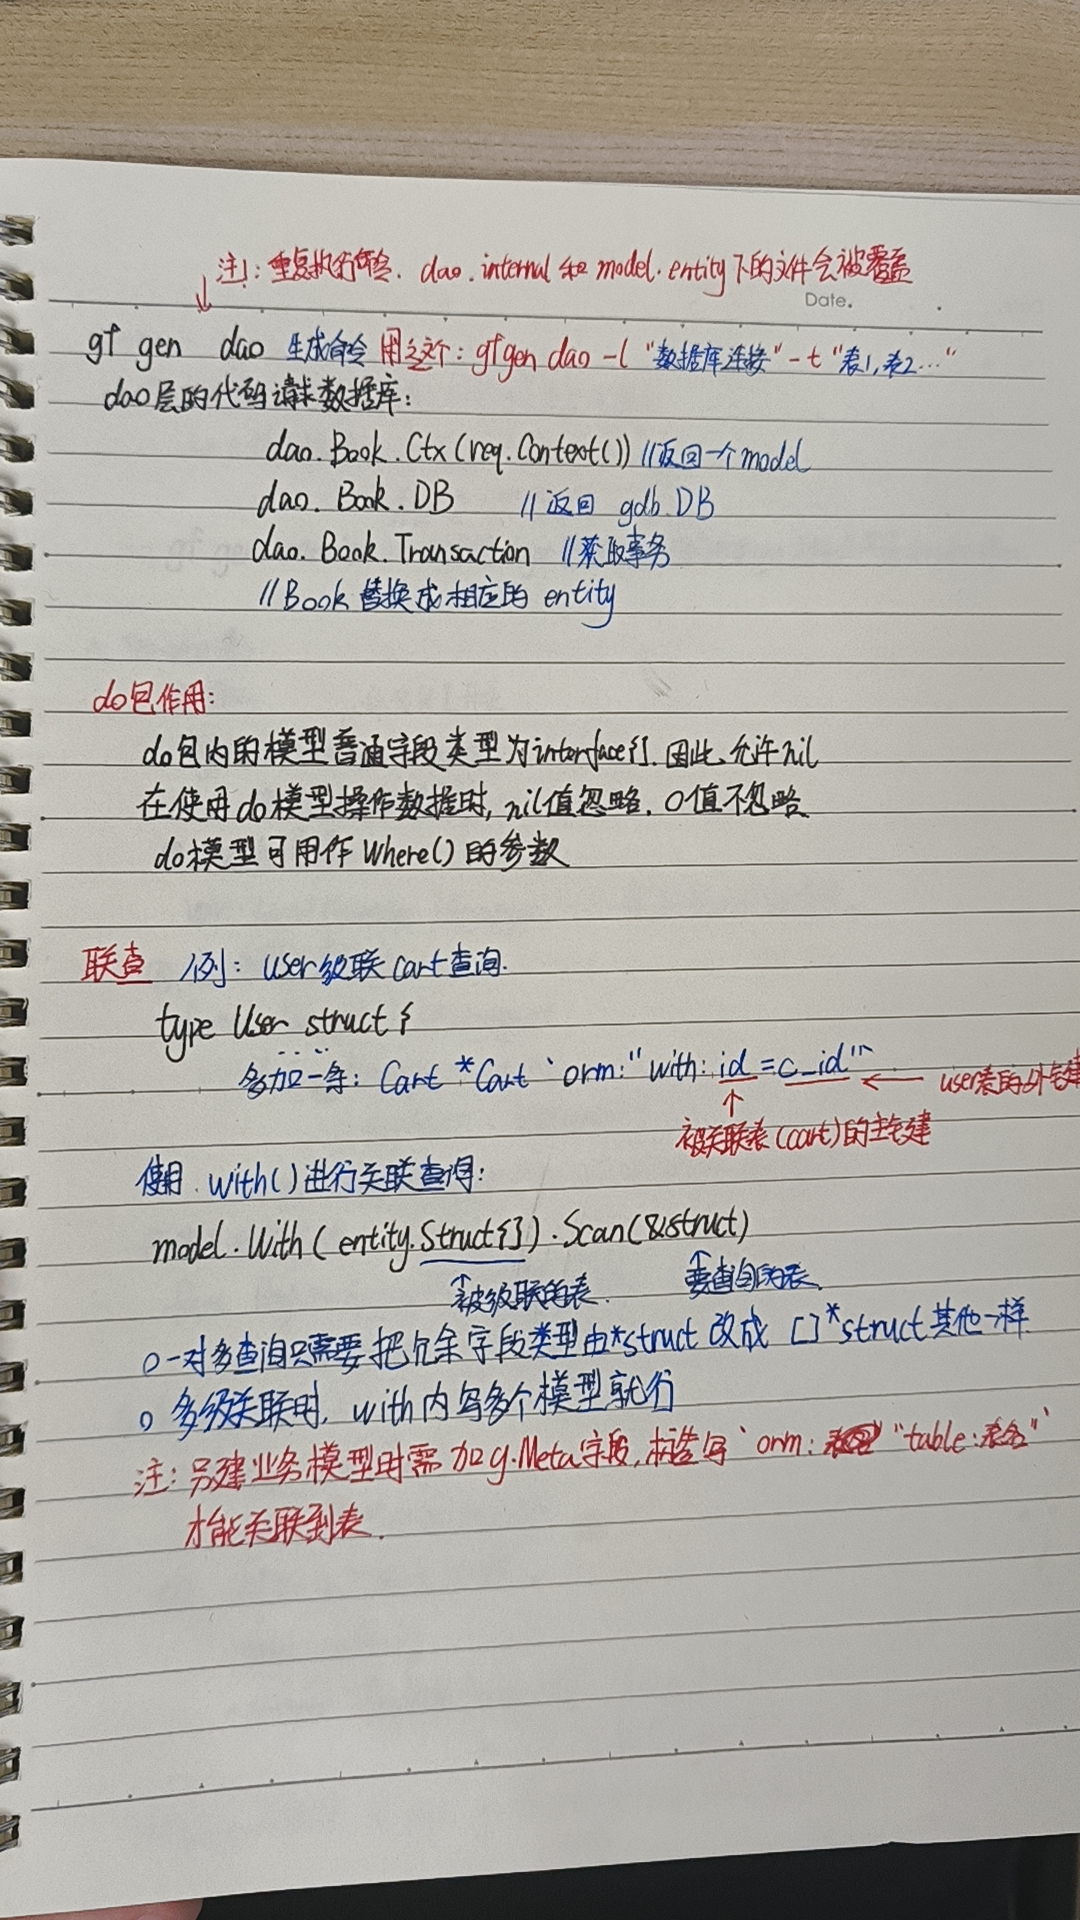 注!: 重复执行命令. dao.internal 和 model.entity下的文件会被覆盖
Date.
gf gen dao 生成命令 用这个: gf gen dao -l "数据库连接" -t "表1,表2..."
dao层的代码请求数据库:
dao.Book.Ctx(req.Context()) //返回一个model
dao.Book.DB //返回 gdb.DB
dao.Book.Transaction //获取事务
//Book 替换成相应的 entity
do包作用:
do包内的模型普通字段类型为interface{}.因此,允许nil
在使用do模型操作数据时,nil值忽略.0值不忽略
do模型可用作Where()的参数
联查 例: user级联cart查询.
type User struct {
.....
多加一条: Cart *Cart `orm:"with:id=c_id"` ← user表的外键
↑
被关联表(cart)的主键
使用 with()进行关联查询:
model.With(entity.Struct{}).Scan(&struct)
↑被级联的表. ↑要查询的表.
○一对多查询只需要把冗余字段类型由*struct 改成 []*struct其他一样
○ 多级关联时, with内写多个模型就行
注: 另建业务模型时需加g.Meta字段,标签写`orm: "table:表名"`
才能关联到表.